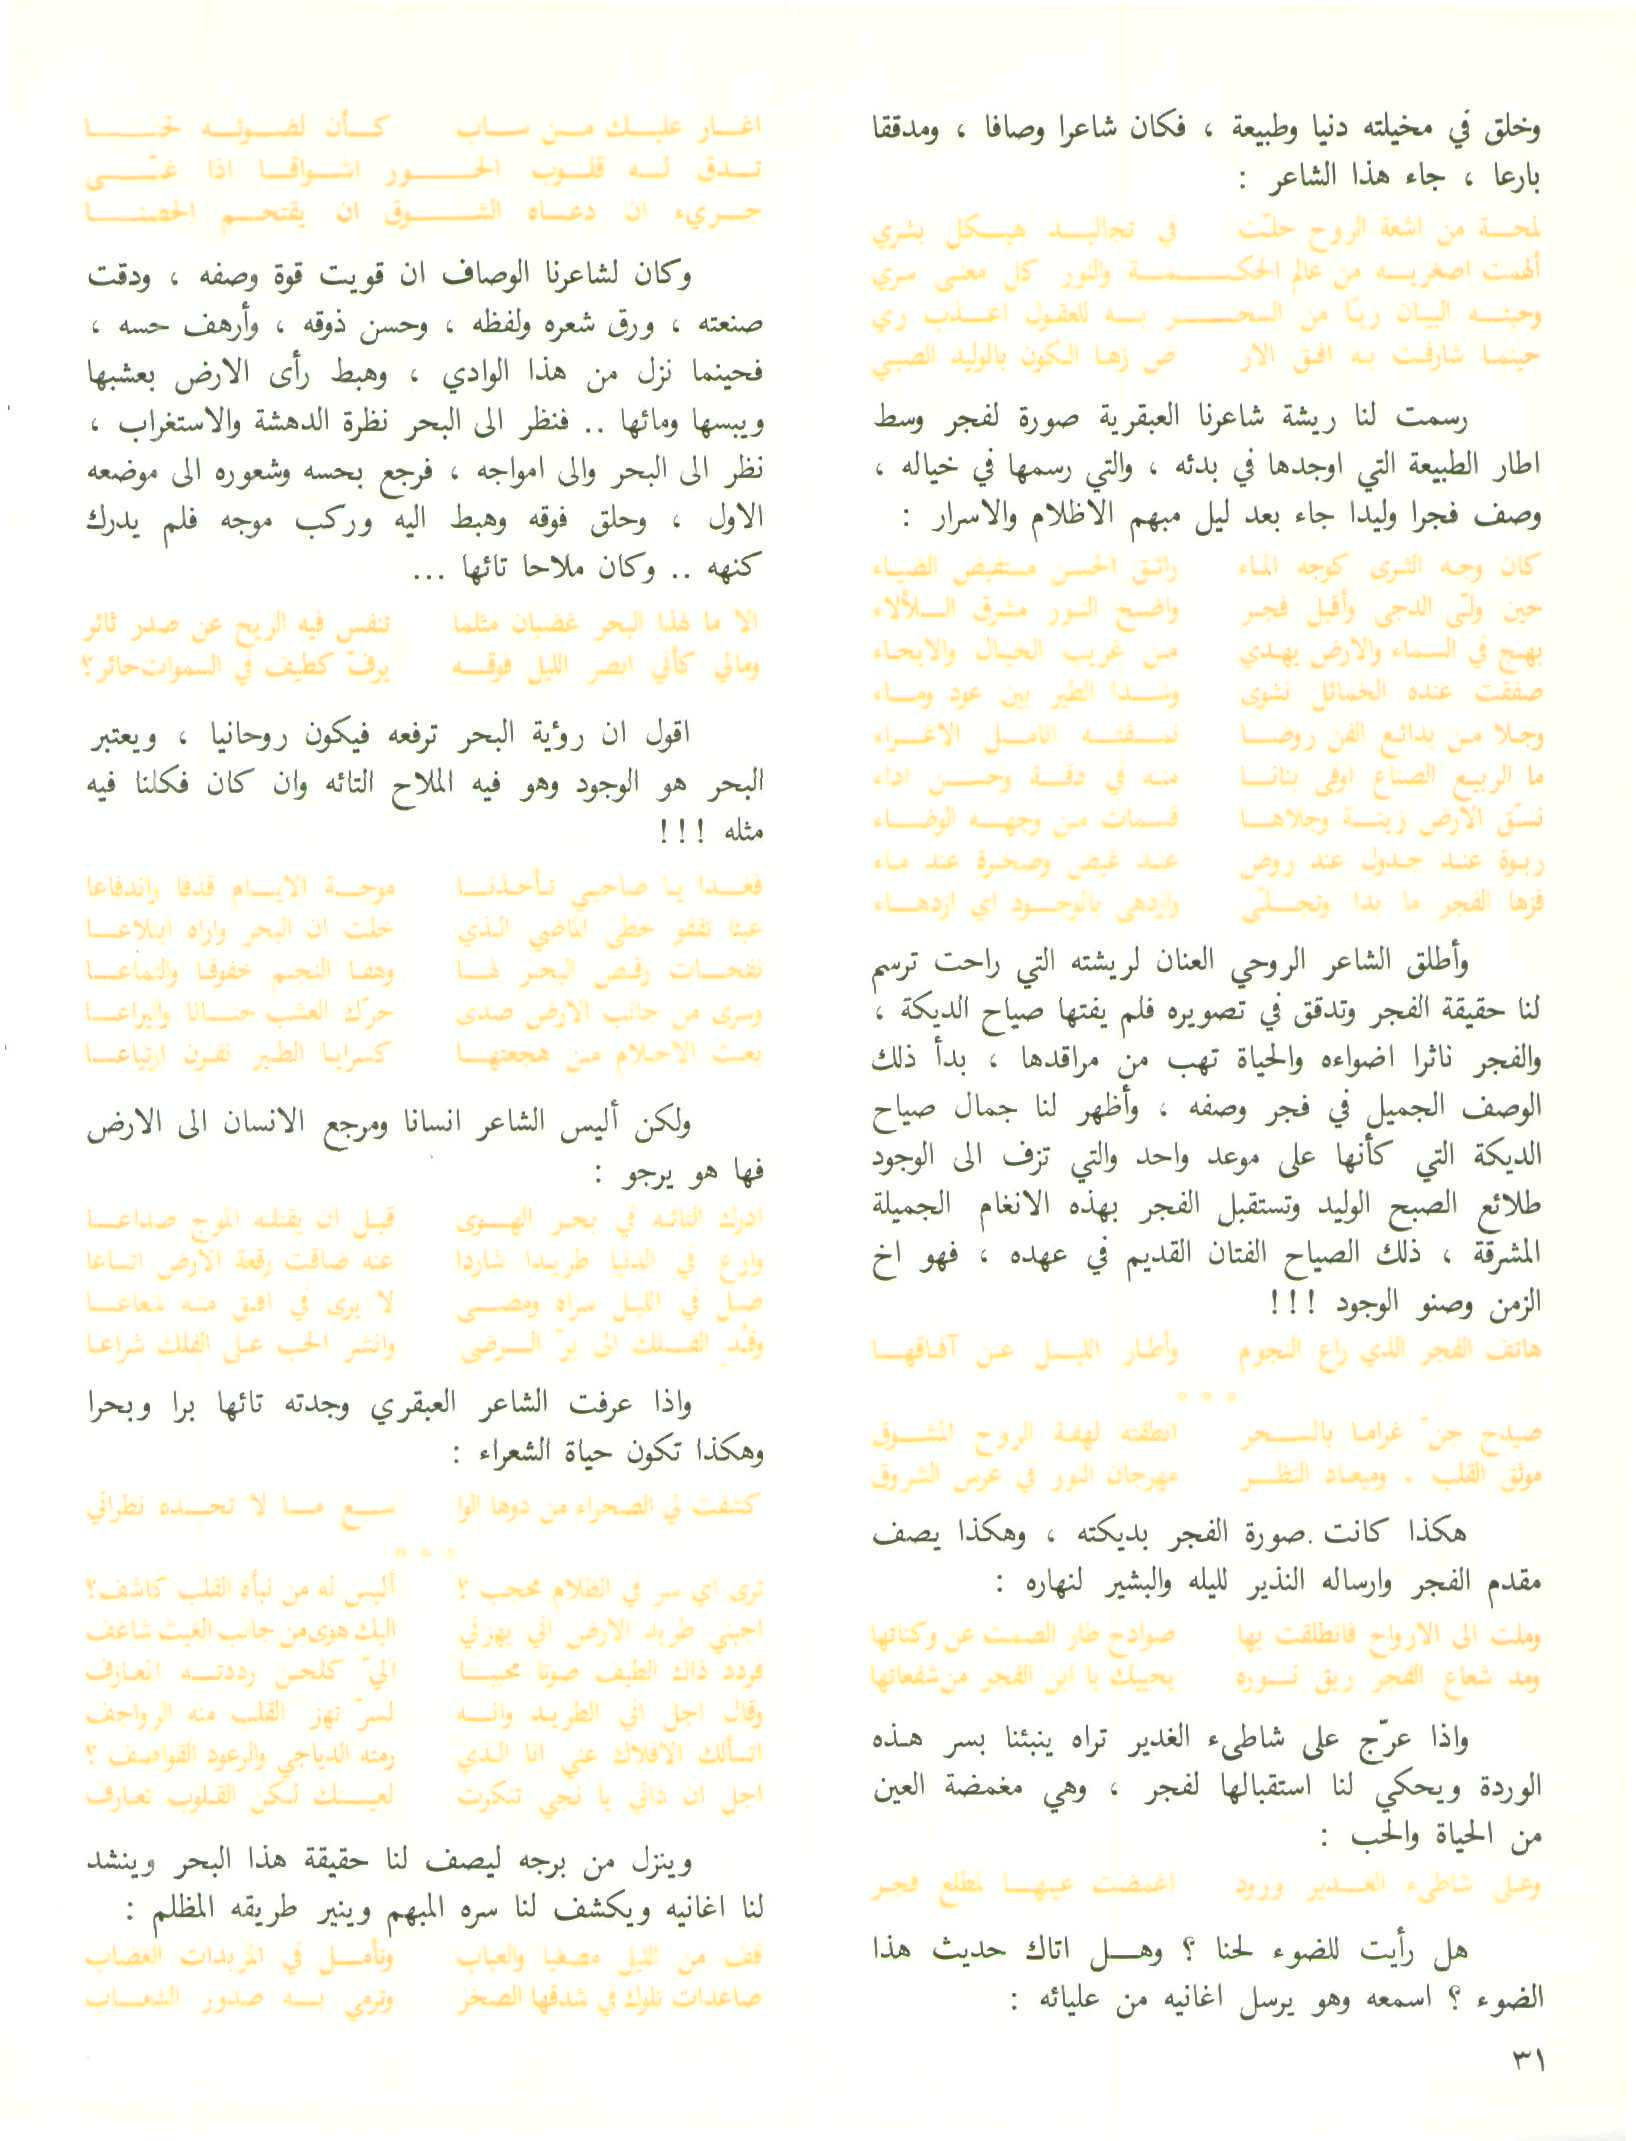 وخلق في مخيلته دنيا وطبيعة ، فكان شاعرا وصافا ، ومدققا
بارعا ، جاء هذا الشاعر :
لمحة من اشعة الروح حلّت في تجاليد هيكل بشري
ألهمت اصغريه من عالم الحكمة والنور كل معنى سري
وحبته البيان ريّا من السحر به للعقول اعذب ري
حينما شارفت به افق الار ض زها الكون بالوليد الصبي
رسمت لنا ريشة شاعرنا العبقرية صورة لفجر وسط
اطار الطبيعة التي اوجدها في بدئه ، والتي رسمها في خياله ،
وصف فجرا وليدا جاء بعد ليل مبهم الاظلام والاسرار :
كان وجه الثرى كوجه الماء رائق الحسن مستفيض الضياء
حين ولّى الدجى وأقبل فجر واضح النور مشرق اللألاء
بهج في السماء والارض يهدي من غريب الخيال والايحاء
صفقت عنده الخمائل نشوى وشدا الطير بين عود وماء
وجلا من بدائع الفن روضا نمقته انامل الاغراء
ما الربيع الصناع اوفى بنانا منه في دقة وحسن اداء
نسّق الارض زينة وجلاها قسمات من وجهه الوضاء
ربوة عند جدول عند روض عند غيض وصخرة عند ماء
فزها الفجر ما بدا وتجلّى وازدهى بالوجود اي ازدهاء
وأطلق الشاعر الروحي العنان لريشته التي راحت ترسم
لنا حقيقة الفجر وتدقق في تصويره فلم يفتها صياح الديكة ،
والفجر ناثرا اضواءه والحياة تهب من مراقدها ، بدأ ذلك
الوصف الجميل في فجر وصفه ، وأظهر لنا جمال صياح
الديكة التي كأنها على موعد واحد والتي تزف الى الوجود
طلائع الصبح الوليد وتستقبل الفجر بهذه الانغام الجميلة
المشرقة ، ذلك الصياح الفتان القديم في عهده ، فهو اخ
الزمن وصنو الوجود !!!
هاتف الفجر الذي راع النجوم وأطار الليل عن آفاقها
* * *
صيدح جنّ غراما بالسحر انطقته لهفة الروح المشوق
موثق القلب . وميعاد النظر مهرجان النور في عرس الشروق
هكذا كانت صورة الفجر بديكته ، وهكذا يصف
مقدم الفجر وارساله النذير لليله والبشير لنهاره :
وملت الى الارواح فانطلقت بها صوادح طار الصمت عن وكناتها
ومد شعاع الفجر ريق نوره يحييك يا ابن الفجر من شفعاتها
واذا عرّج على شاطىء الغدير تراه ينبئنا بسر هذه
الوردة ويحكي لنا استقبالها لفجر ، وهي مغمضة العين
من الحياة والحب :
وعلى شاطىء الغدير ورود اغمضت عينها لمطلع فجر
هل رأيت للضوء لحنا ؟ وهل اتاك حديث هذا
الضوء ؟ اسمعه وهو يرسل اغانيه من عليائه :
اغار عليك من ساب كأن لضوئه لحنا
تدق له قلوب الحور اشواقا اذا غنّى
جريء ان دعاه الشوق ان يقتحم الحصنا
وكان لشاعرنا الوصاف ان قويت قوة وصفه ، ودقت
صنعته ، ورق شعره ولفظه ، وحسن ذوقه ، وأرهف حسه ،
فحينما نزل من هذا الوادي ، وهبط رأى الارض بعشبها
ويبسها ومائها .. فنظر الى البحر نظرة الدهشة والاستغراب ،
نظر الى البحر والى امواجه ، فرجع بحسه وشعوره الى موضعه
الاول ، وحلق فوقه وهبط اليه وركب موجه فلم يدرك
كنهه .. وكان ملاحا تائها ...
الا ما لهذا البحر غضبان مثلما تنفس فيه الريح عن صدر ثائر
ومالي كأني ابصر الليل فوقه يرفّ كطيف في السموات حائر؟
اقول ان رؤية البحر ترفعه فيكون روحانيا ، ويعتبر
البحر هو الوجود وهو فيه الملاح التائه وان كان فكلنا فيه
مثله !!!
فغدا يا صاحبي تأخذنا موجة الايام قذفا واندفاعا
عبثا تقفو خطى الماضي الذي خلت ان البحر واراه ابتلاعا
نفحات رقص البحر لها وهفا النجم خفوقا والتماعا
وسرى من جانب الارض صدى حرّك العشب حنانا واليراعا
بعث الاحلام من هجعتها كسرايا الطير نفرن ارتياعا
ولكن أليس الشاعر انسانا ومرجع الانسان الى الارض
فها هو يرجو :
ادرك التائه في بحر الهوى قبل ان يقتله الموج صراعا
وارع في الدنيا طريدا شاردا عنه ضاقت رقعة الارض اتساعا
ضل في الليل سراه ومضى لا يرى في افق منه شعاعا
وقد الفلك الى برّ الرضى وانشر الحب على الفلك شراعا
واذا عرفت الشاعر العبقري وجدته تائها برا وبحرا
وهكذا تكون حياة الشعراء :
كشفت لي الصحراء من دوها الوا سع ما لا تحده نظراتي
* * *
ترى اي سر في الظلام محجب ؟ أليس له من نبأه القلب كاشف؟
اجبني طريد الارض اني يهزني اليك هوى من جانب الغيب شاغف
فردد ذاك الطيف صوتا محببا اليّ كلحن رددته المعازف
وقال اجل اني الطريد وانه لسرّ تهز القلب منه الرواجف
اتسألك الافلاك عني انا الذي رمته الدياجي والرعود القواصف ؟
اجل ان ذاتي يا نجي تنكرت لعينك لكن القلوب تعارف
وينزل من برجه ليصف لنا حقيقة هذا البحر وينشد
لنا اغانيه ويكشف لنا سره المبهم وينير طريقه المظلم :
قف من الليل مصغيا والعباب وتأمل في المزبدات الغضاب
صاعدات تلوك في شدقها الصخر وترمي به صدور الشعاب
٣١